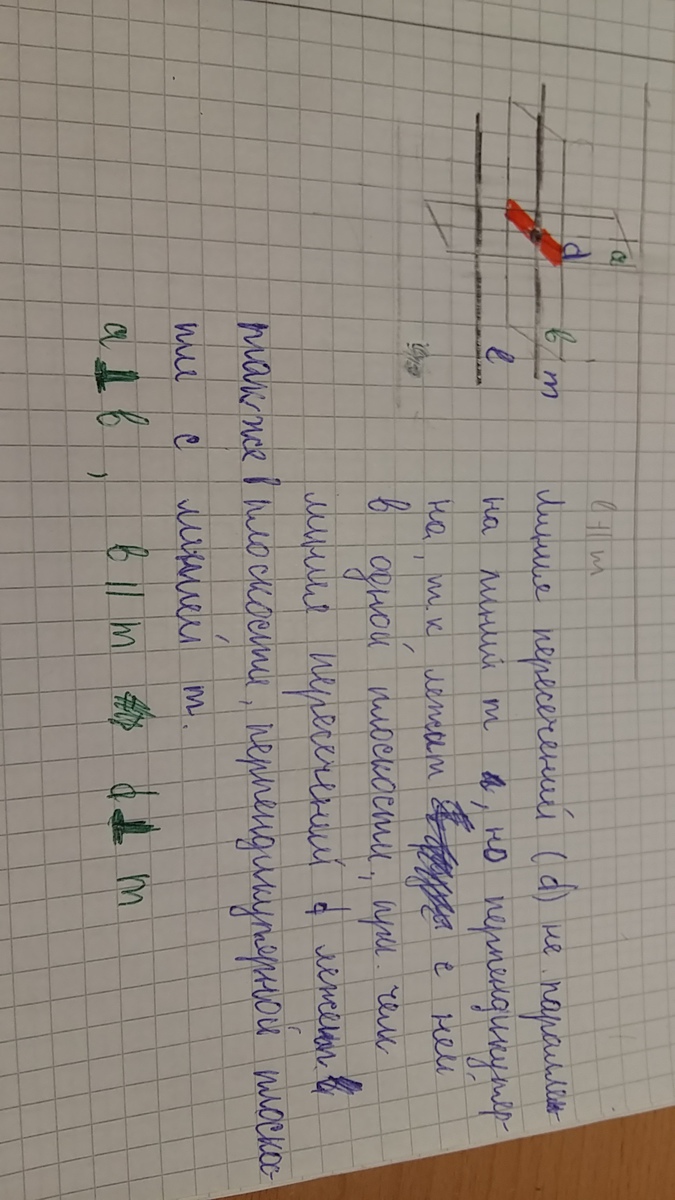 a
d
в
m
l
l ∦ m
Линия пересечений (d) не параллель-
на линий m , но перпендикуляр-
на, т.к лежат с ней
в одной плоскости, при чем
линия пересечений d лежит в
так-же в плоскости, перпендикулярной плоскос-
ти с линией m.
a ⊥ в , в || m d ⊥ m